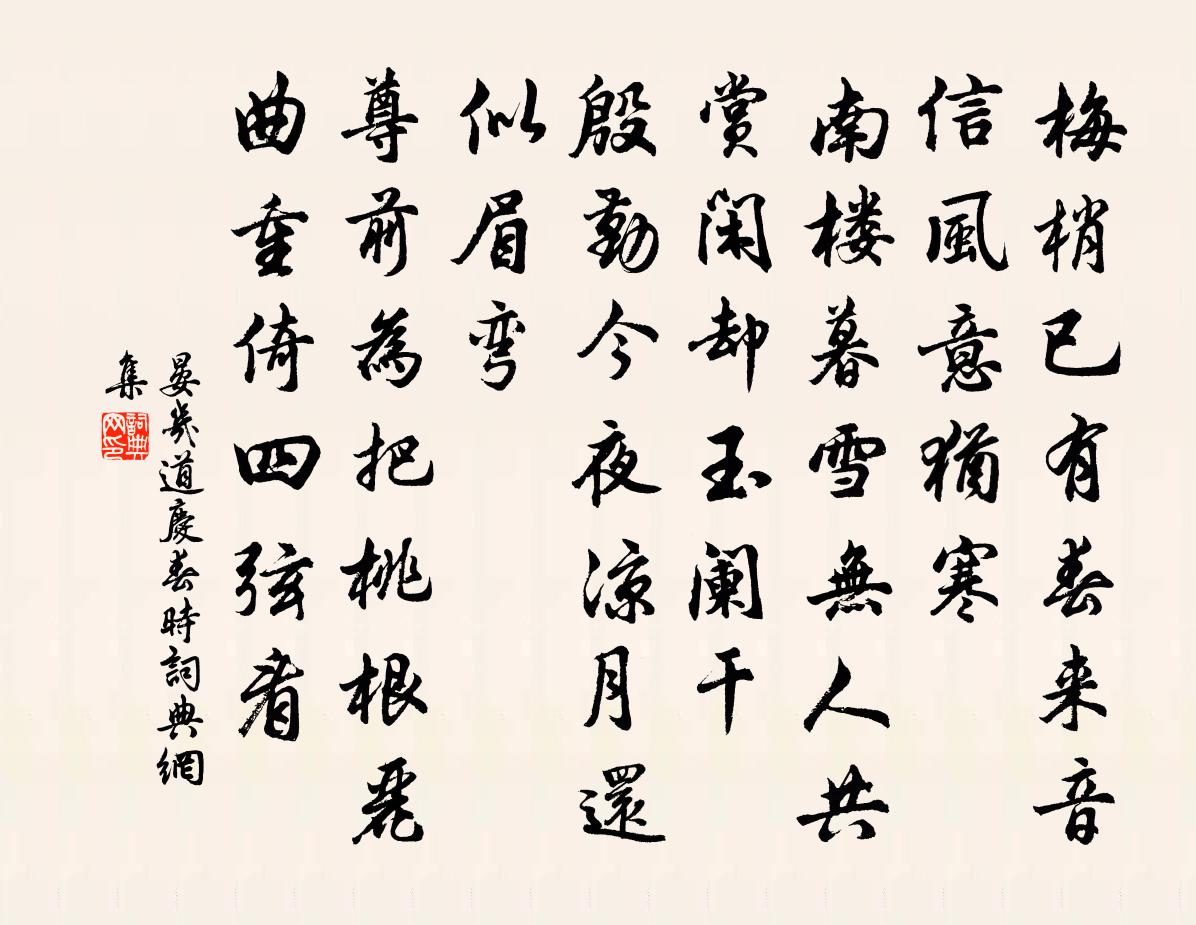 梅梢已有春来音
信風意猶寒
南楼暮雪無人共
賞闲却玉阑干
殷勤今夜凉月還
似眉弯
尊前為把桃根麗
曲重倚四弦看
晏幾道慶春時詞典網
集
詞典
网印